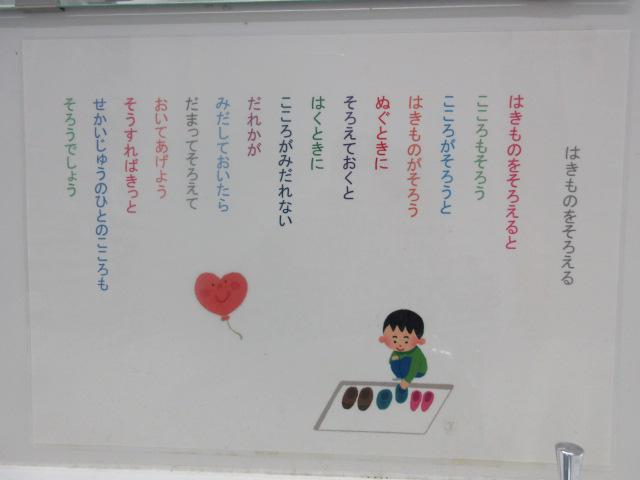 はきものをそろえる
はきものをそろえると
こころもそろう
こころがそろうと
はきものがそろう
ぬぐときに
そろえておくと
はくときに
こころがみだれない
だれかが
みだしておいたら
だまってそろえて
おいてあげよう
そうすればきっと
せかいじゅうのひとのこころも
そろうでしょう